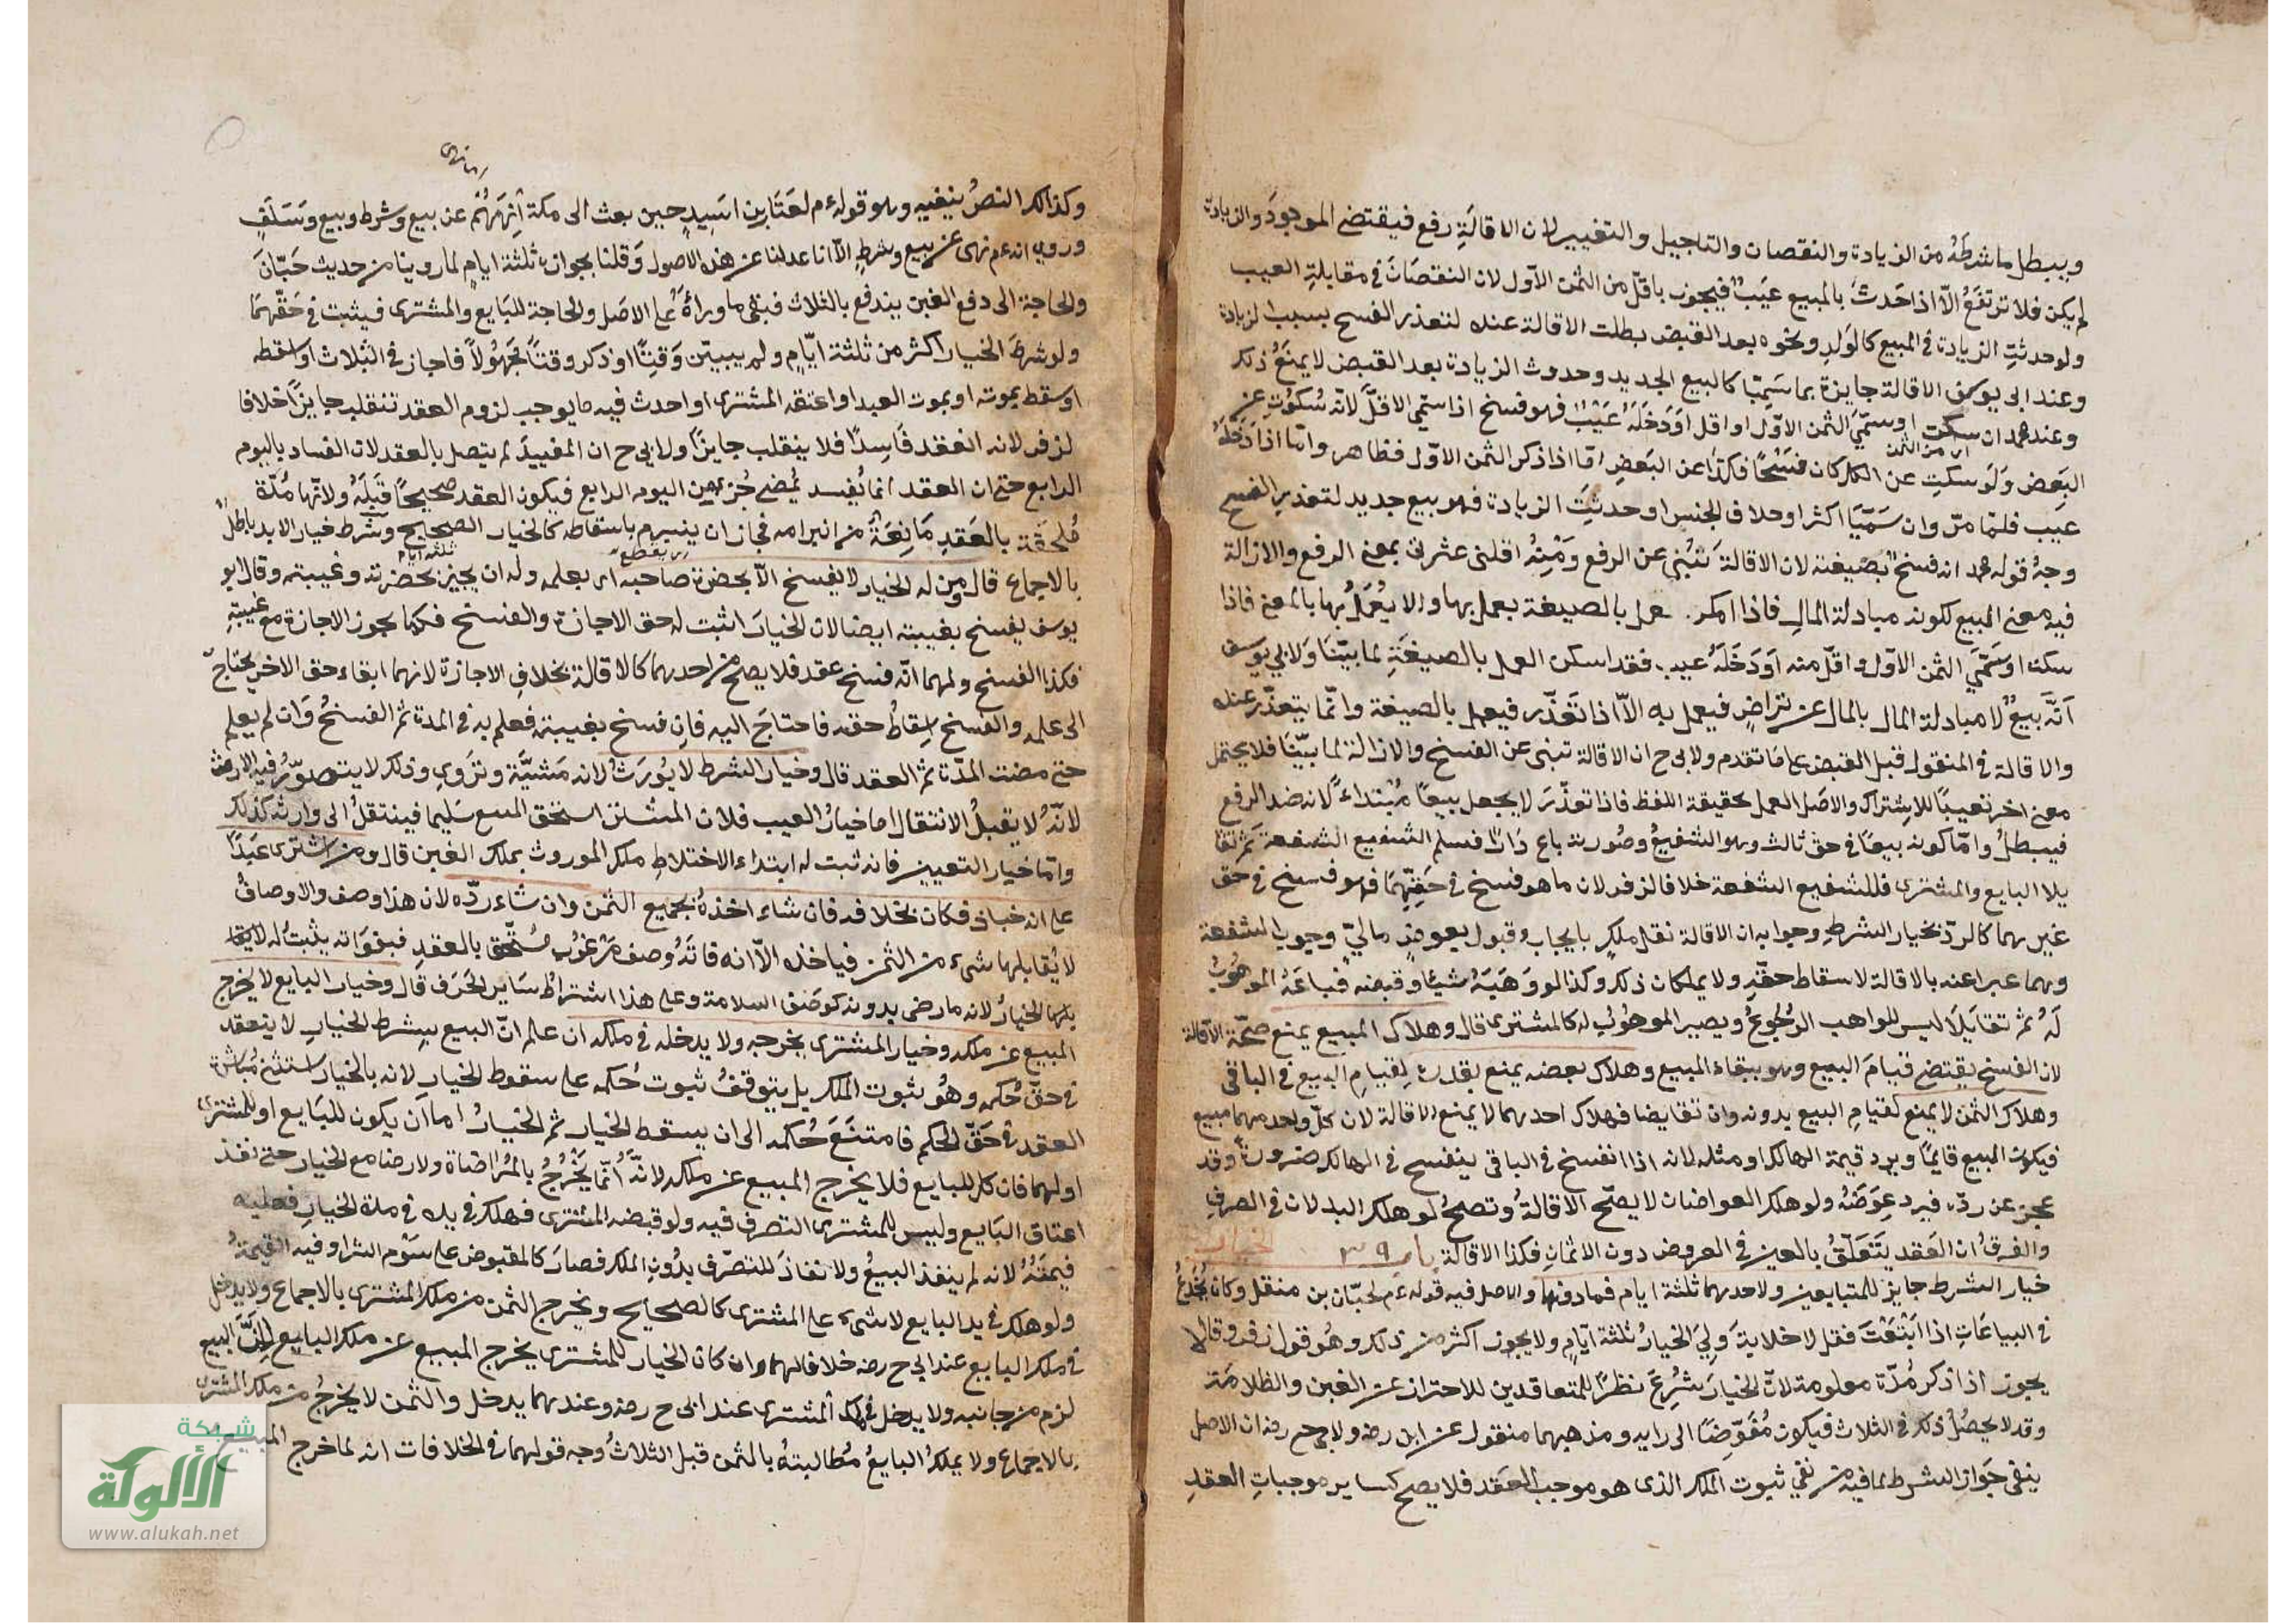 ويبطل ما شرطه من الزيادة والنقصان والتاجيل والتغيير لان الاقالة رفع فيقتضي الموجود والزيادة
لم يكن فلا ترتفع الا اذا حدث بالمبيع عيب فيجوز باقل من الثمن الاول لان النقصان في مقابلة العيب
ولو حدثت الزيادة في المبيع كالولد ونحوه بعد القبض بطلت الاقالة عنده لتعذر الفسخ بسبب الزيادة
وعند ابي يوسف الاقالة جايزة بما سميا كالبيع الجديد وحدوث الزيادة بعد القبض لا يمنع ذلك
وعند محمد ان سكت او سمى الثمن الاول او اقل او دخله عيب فهو فسخ اذا سمى الاقل لانه سكوت عن
اي من الثمن
البعض ولو سكت عن الكل كان فسخا فكذا عن البعض اما اذا ذكر الثمن الاول فظاهر واما اذا دخله
عيب فلما مر وان سميا اكثر او خلاف الجنس او حدثت الزيادة فهو بيع جديد لتعذر الفسخ
وجه قول محمد انه فسخ بصيغته لان الاقالة تنبئ عن الرفع ومنه اقلني عثرتي بمعنى الرفع والازالة
فيه معنى المبيع لكونه مبادلة المال فاذا امكن عمل بالصيغة يعمل بها والا يعمل بها بالمعنى فاذا
سكتا او سمى الثمن الاول او اقل منه او دخله عيب فقد امكن العمل بالصيغة لما بينا ولابي يوسف
انه بيع لا مبادلة المال بالمال عن تراض فيعمل به الا اذا تعذر فيعمل بالصيغة وانما يتعذر عنده
والاقالة في المنقول قبل القبض على ما تقدم ولابي ح ان الاقالة تنبئ عن الفسخ والازالة لما بينا فلا يحتمل
معنى اخر نفيا للاشتراك والاصل العمل بحقيقة اللفظ فاذا تعذر لا يجعل بيعا مبتداء لانه ضد الرفع
فيبطل واما كونه بيعا في حق ثالث وهو الشفيع وصورته باع دارا فسلم الشفيع الشفعة ثم تقا
يلا البايع والمشتري فللشفيع الشفعة خلافا لزفر لان ما هو فسخ في حقهما فهو فسخ في حق
غيرهما كالرد بخيار الشرط وجوابه ان الاقالة نقل ملك بايجاب وقبول بعوض مالي وجوب الشفعة
وهما عبرا عنه بالاقالة لاسقاط حقه ولا يملكان ذلك وكذا لو وهبه شيئا وقبضه فباعه الموهوب
له ثم تقايلا ليس للواهب الرجوع ويصير الموهوب له كالمشتري قال وهلاك المبيع يمنع صحة الاقالة
لان الفسخ يقتضي قيام البيع وهو ببقاء المبيع وهلاك بعضه يمنع بقدره لقيام البيع في الباقي
وهلاك الثمن لا يمنع لقيام البيع بدونه وان تقايضا فهلاك احدهما لا يمنع الاقالة لان كل واحد منهما مبيع
فيكون المبيع قايما ويرد قيمة الهالك او مثله لانه اذا انفسخ في الباقي ينفسخ في الهالك ضرورة وقد
عجز عن رده فيرد عوضه ولو هلك العوضان لا يصح الاقالة وتصح لو هلك البدلان في الصرف
والفرق ان العقد يتعلق بالعين في العروض دون الاثمان فكذا الاقالة باب الخيار
خيار الشرط جايز للمتبايعين ولاحدهما ثلثة ايام فما دونها والاصل فيه قوله عم لحبان بن منقذ وكان يخدع
في البياعات اذا ابتعت فقل لا خلابة ولي الخيار ثلثة ايام ولا يجوز اكثر من ذلك وهو قول زفر وقالا
يجوز اذا ذكر مدة معلومة لان الخيار شرع نظرا للمتعاقدين للاحتراز عن الغبن والظلامة
وقد لا يحصل ذلك في الثلاث فيكون مفوضا الى رايه ومذهبهما منقول عن ابن رضه ولابي ح رضه ان الاصل
ينفي جواز الشرط لما فيه من نفي ثبوت الملك الذي هو موجب العقد فلا يصح كساير موجبات العقد
وكذالك النص ينفيه وهو قوله عم لعتاب بن اسيد حين بعث الى مكة انههم عن بيع وشرط وبيع وسلف
وروي انه عم نهى عن بيع وشرط الا انا عدلنا عن هذه الاصول وقلنا بجوازه ثلثة ايام لما روينا من حديث حبان
والحاجة الى دفع الغبن يندفع بالثلاث فبقي ما وراه على الاصل والحاجة للبايع والمشتري فيثبت في حقهما
ولو شرط الخيار اكثر من ثلثة ايام ولم يبين وقتا او ذكر وقتا مجهولا فاجاز في الثلاث او اسقطه
او سقط بموته او بموت العبد او اعتقه المشتري او احدث فيه ما يوجب لزوم العقد تنقلب جايزا خلافا
لزفر لانه انعقد فاسدا فلا ينقلب جايزا ولابي ح ان المفسد لم يتصل بالعقد لان الفساد باليوم
الرابع حتى ان العقد انما يفسد بمضي جزء من اليوم الرابع فيكون العقد صحيحا قبله ولانها مدة
ملحقة بالعقد مانعة من انبرامه فجاز ان ينبرم باسقاطه كالخيار الصحيح وشرط خيار الابد باطل
بالاجماع قال ومن له الخيار لا يفسخ الا بحضرة صاحبه اي بعلمه وله ان يجيز بحضرته وغيبته وقال ابو
يوسف يفسخ بغيبته ايضا لان الخيار اثبت له حق الاجازة والفسخ فكما يجوز الاجازة مع غيبته
فكذا الفسخ ولهما انه فسخ عقد فلا يصح من احدهما كالاقالة بخلاف الاجازة لانهما ابقاء حق الاخر يحتاج
الى علمه والفسخ اسقاط حقه فاحتاج اليه فان فسخ بغيبته فعلم به في المدة ثم الفسخ وان لم يعلم
حتى مضت المدة ثم العقد قال وخيار الشرط لا يورث لانه مشيئة وتروي وذلك لا يتصور فيه الارث
لانه لا يقبل الانتقال اما خيار العيب فلان المشتري استحق المبيع سليما فينتقل الى وارثه كذلك
واما خيار التعيين فانه ثبت له ابتداء الاختلاط ملك الموروث بملك الغير قال ومن اشترى عبدا
على انه خباز فكان بخلافه فان شاء اخذه بجميع الثمن وان شاء رده لان هذا وصف والاوصاف
لا يقابلها شيء من الثمن فياخذه الا انه فاته وصف مرغوب مستحق بالعقد فبفواته يثبت له
الخيار لانه ما رضي بدونه كوصف السلامة وعلى هذا اشتراط ساير الحرف قال وخيار البايع لا يخرج
المبيع عن ملكه وخيار المشتري يخرجه ولا يدخله في ملكه ان علم ان البيع بشرط الخيار لا ينعقد
في حق حكمه وهو ثبوت الملك بل يتوقف ثبوت حكمه على سقوط الخيار لانه بالخيار استثنى مباشرة
العقد في حق الحكم فامتنع حكمه الى ان يسقط الخيار ثم الخيار اما ان يكون للبايع او للمشتري
او لهما فان كان للبايع فلا يخرج المبيع عن ملكه لانه انما يخرج بالمراضاة ولا رضا مع الخيار حتى نفذ
اعتاق البايع وليس للمشتري التصرف فيه ولو قبضه المشتري فهلك في يده في مدة الخيار فعليه
قيمته لانه لم ينفذ البيع ولا نفاذ للتصرف بدون الملك فصار كالمقبوض على سوم الشرا وفيه القيمة
ولو هلك في يد البايع لا شيء على المشتري كالصحيح ويخرج الثمن من ملك المشتري بالاجماع ولا يدخل
في ملك البايع عند ابي ح رضه خلافا لهما وان كان الخيار للمشتري يخرج المبيع عن ملك البايع لان البيع
لزم من جانبه ولا يدخل في ملك المشتري عند ابي ح رضه وعندهما يدخل والثمن لا يخرج من ملك المشتري
بالاجماع ولا يملك البايع مطالبته بالثمن قبل الثلاث وجه قولهما في الخلافات انه لما خرج المبيع
شبكة
الألوكة
www.alukah.net